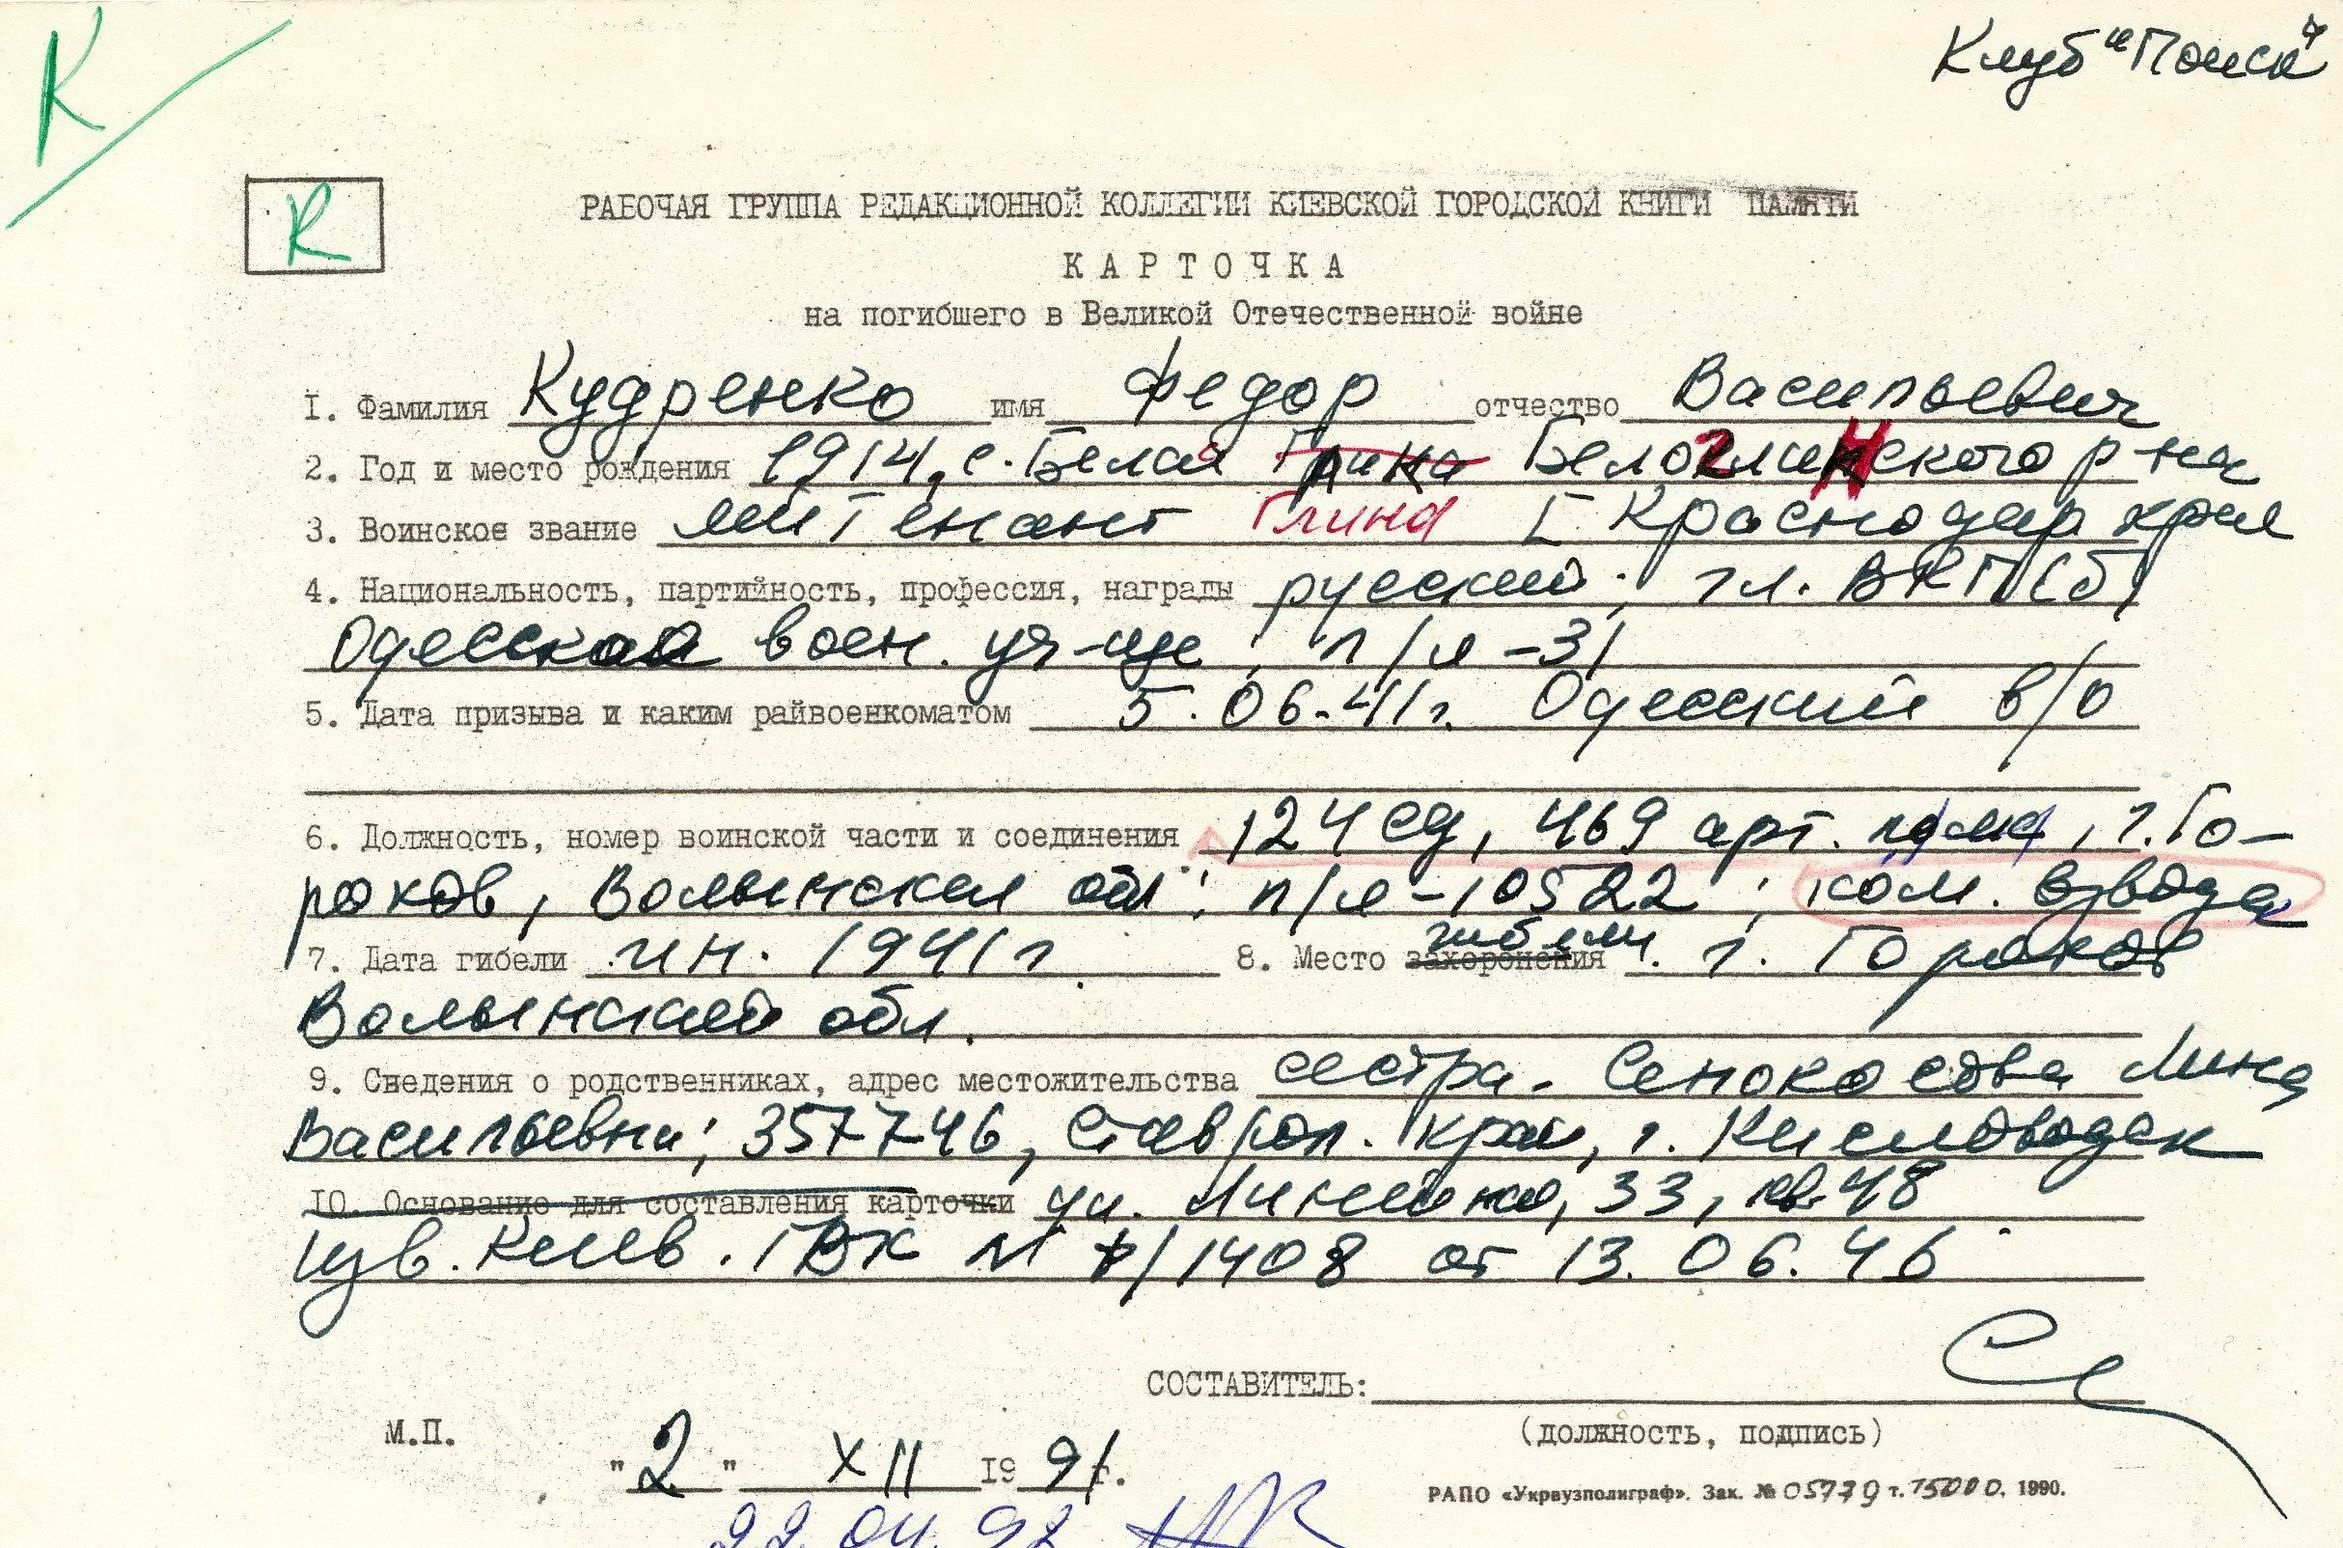 К
Клуб "Поиск"
К
РАБОЧАЯ ГРУППА РЕДАКЦИОННОЙ КОЛЛЕГИИ КИЕВСКОЙ ГОРОДСКОЙ КНИГИ ПАМЯТИ
КАРТОЧКА
на погибшего в Великой Отечественной войне
1. Фамилия Кудренко имя Федор отчество Васильевич
2. Год и место рождения 1914, с. Белая Глина Белоглинского р-на
3. Воинское звание лейтенант Глина Краснодар края
4. Национальность, партийность, профессия, награды русский; чл. ВКП(б)
Одесское воен. уч-ще; п/я-31
5. Дата призыва и каким райвоенкоматом 5.06.41г. Одесский в/о
6. Должность, номер воинской части и соединения 124 сд, 469 арт. полк, г. Го-
рохов, Волынская обл; п/я-10522; ком. взвода
7. Дата гибели ин. 1941г. 8. Место захоронения гибели г. Горохов
Волынской обл.
9. Сведения о родственниках, адрес местожительства сестра - Сенокосова Лина
Васильевна; 357746, Ставроп. край, г. Кисловодск
10. Основание для составления карточки ул. 33, кв. 48
изв. Киев. ГВК № 1408 от 13.06.46
СОСТАВИТЕЛЬ:
М.П.
(ДОЛЖНОСТЬ, ПОДПИСЬ)
"2" XII 1991г.
РАПО «Укрвузполиграф». Зак. № 05779 т. 15000. 1990.
22.04.92